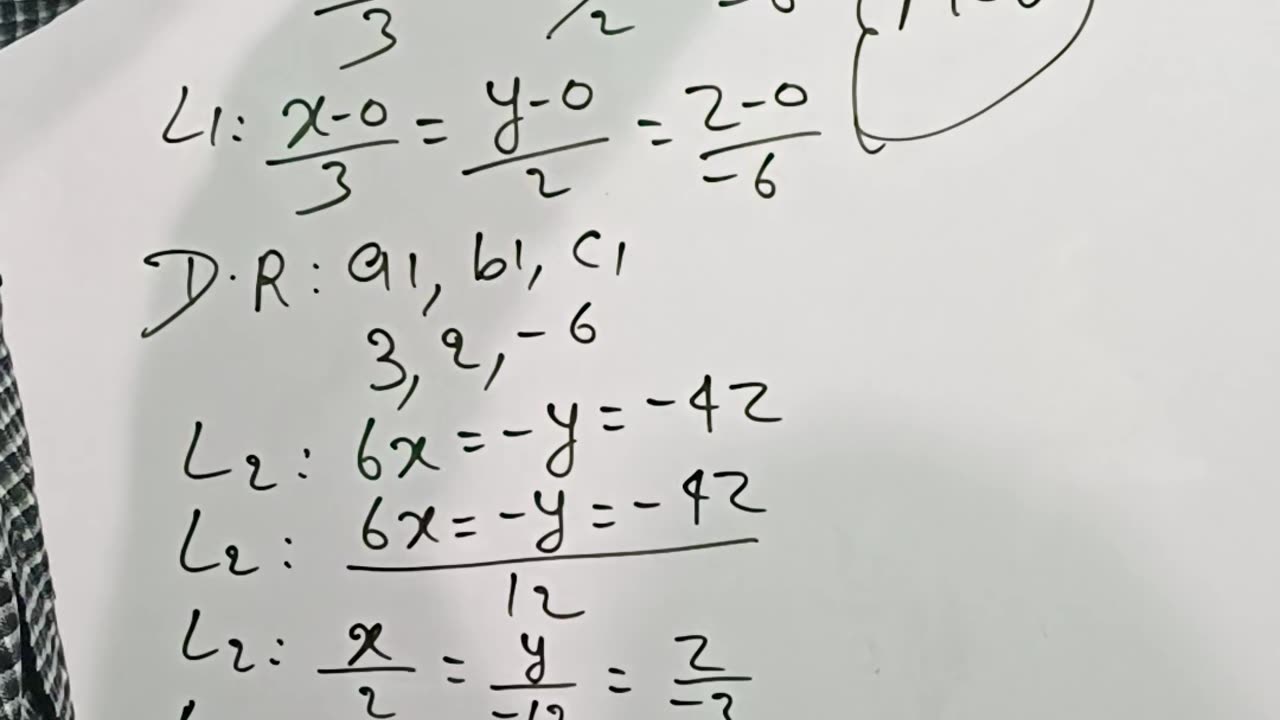 3 2
L1: x-0/3 = y-0/2 = z-0/-6
D.R: a1, b1, c1
3, 2, -6
L2: 6x = -y = -4z
L2: 6x = -y = -4z / 12
L2: x/2 = y/-12 = z/-3